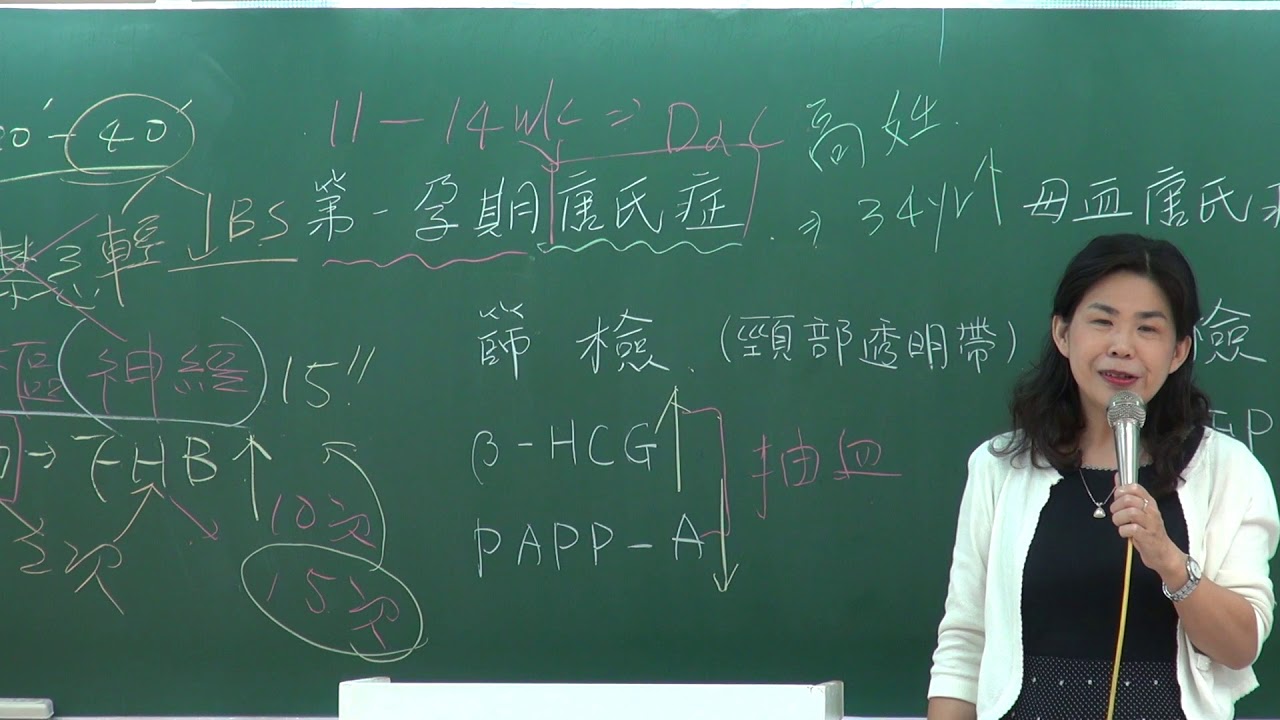 20'-40'
11-14wk ⇒ D&C 高姓
↓BS 第一孕期唐氏症 ⇒ 34yr↑ 母血唐氏症
禁忌輕
篩檢 (頸部透明帶) 檢
樞神經 15''
→ FHB↑
β-HCG↑ 抽血
10次
PAPP-A↓
2次
15次